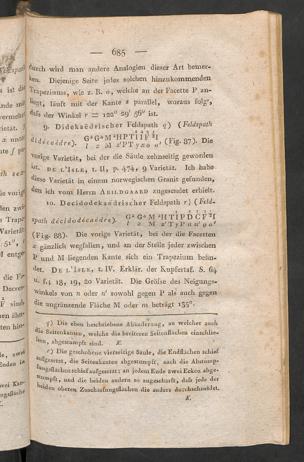 — 685 —
durch wird man andere Analogien dieser Art bemer-
ken. Diejenige Seite jedes solchen hinzukommenden
Trapeziums, wie z. B. o, welche an der Facette P an-
liegt, läuft mit der Kante s parallel, woraus folgt,
daſs der Winkel r = 122° 29′ 56″ ist.
9. Didekaëdrischer Feldspath q) (Feldspath
didécaèdre).
(Fig. 87). Die
vorige Varietät, bei der die Säule zehnseitig geworden
ist. DE L'ISLE, t. II, p. 474, 9 Varietät. Ich habe
diese Varietät in einem norwegischen Granit gefunden,
den ich vom Herrn ABILDGAARD zugesendet erhielt.
10. Decidodekaëdrischer Feldspath r) (Feld-
spath décidodécaèdre).
(Fig. 88). Die vorige Varietät, bei der die Facetten
z gänzlich wegfallen, und an der Stelle jeder zwischen
P und M liegenden Kante sich ein Trapezium befin-
det. DE L'ISLE, t. IV. Erklär. der Kupfertaf. S. 64
u. f.; 18, 19, 20 Varietät. Die Gröſse des Neigungs-
winkels von n oder n′ sowohl gegen P als auch gegen
die angränzende Fläche M oder m beträgt 135°.
q) Die eben beschriebene Abänderung, an welcher auch
die Seitenkanten, welche die breiteren Seitenflächen einschlie-
ſsen, abgestumpft sind. K.
r) Die geschobene vierseitige Säule, die Endflächen schief
aufgesetzt, die Seitenkanten abgestumpft, auch die Abstump-
fungsflächen schief aufgesetzt; an jedem Ende zwei Ecken abge-
stumpft, und die beiden andern so zugeschärft, daſs jede der
beiden obern Zuschärfungsflächen die andere durchschneidet.
K.